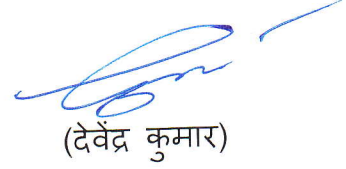 (देवेंद्र कुमार)